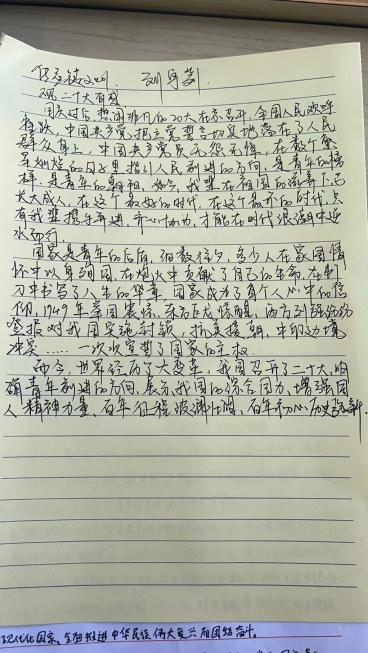 观二十大有感
国庆过后,热闹非凡的20大在京召开,全国人民欢呼
雀跃,中国共产党把立党誓言切实地落在了人民
群众身上,中国共产党员无怨无悔,在数个繁
星灿烂的日子里指引人民前进的方向,是青年的榜
样,是青年的,如今,我辈在祖国的滋养下茁
大成人,在这个最好的时代,在这个最齐的时代,只
有我辈携手并进,齐心协力,才能在时代浪潮中逆
水而行。
国家是青年的后盾,细数往夕,多少人在家国情
怀中以身殉国,在炮火中贡献了自己的生命,在
刃中书写了人生的华章,国家成为了每个人心中的信
仰,1949年
对我国实施封锁,抗美援朝,中印边境
冲突……一次次宣誓了国家的主权。
而今,世界经历了大变革,我国召开了二十大,明
确青年前进的方向,展示我国的综合国力,增强国
人精神力量,百年征程波澜壮阔,百年初心历久弥新.
现代化国家、全面推进中华民族伟大复兴而团结奋斗。